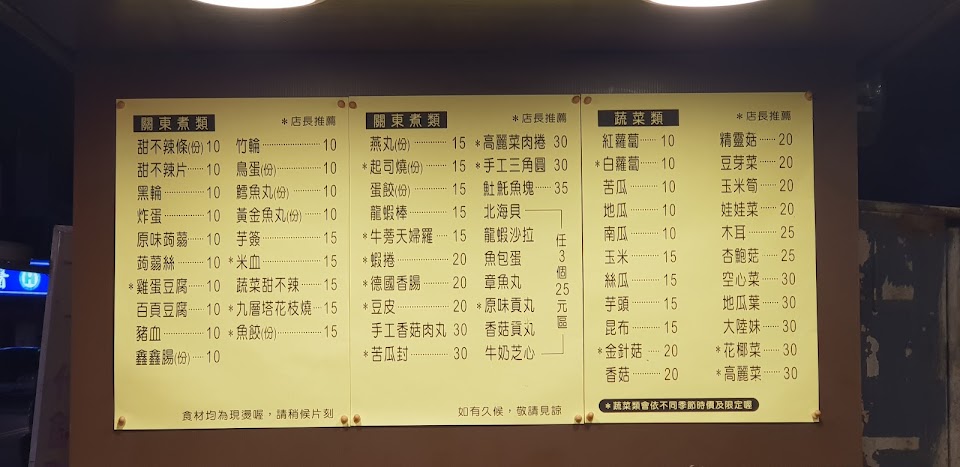 關東煮類
*店長推薦
甜不辣條(份) 10
甜不辣片 10
黑輪 10
炸蛋 10
原味蒟蒻 10
蒟蒻絲 10
*雞蛋豆腐 10
百頁豆腐 10
豬血 10
鑫鑫腸(份) 10
竹輪 10
鳥蛋(份) 10
鱈魚丸(份) 10
黃金魚丸(份) 10
芋簽 15
*米血 15
蔬菜甜不辣 15
*九層塔花枝燒 15
*魚餃(份) 15
食材均為現燙喔,請稍候片刻
關東煮類
*店長推薦
燕丸(份) 15
*起司燒(份) 15
蛋餃(份) 15
龍蝦棒 15
*牛蒡天婦羅 15
*蝦捲 20
*德國香腸 20
*豆皮 20
手工香菇肉丸 30
*苦瓜封 30
*高麗菜肉捲 30
*手工三角圓 30
魠魠魚塊 35
北海貝
龍蝦沙拉
魚包蛋
章魚丸
*原味貢丸
香菇貢丸
牛奶芝心
任3個25元區
如有久候,敬請見諒
蔬菜類
*店長推薦
紅蘿蔔 10
*白蘿蔔 10
苦瓜 10
地瓜 10
南瓜 10
玉米 15
絲瓜 15
芋頭 15
昆布 15
*金針菇 20
香菇 20
精靈菇 20
豆芽菜 20
玉米筍 20
娃娃菜 20
木耳 25
杏鮑菇 25
空心菜 30
地瓜葉 30
大陸妹 30
*花椰菜 30
*高麗菜 30
*蔬菜類會依不同季節時價及限定喔